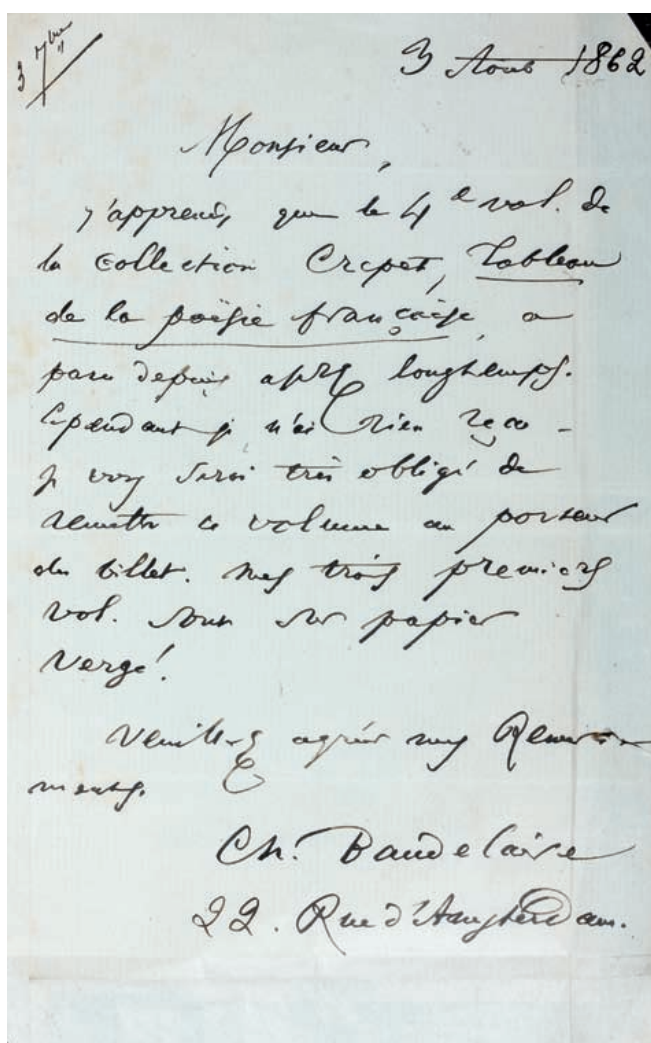 3 7bre
3 Aout 1862
Monsieur,
j'apprends que le 4e vol. de
la collection Crepet, Tableau
de la poësie française, a
paru depuis assez longtemps.
Cependant je n'ai rien reçu -
je vous serai très obligé de
remettre ce volume au porteur
du billet. mes trois premiers
vol. sont sur papier
vergé.
Veuillez agréer mes Remercie-
ments.
Ch. Baudelaire
22. Rue d'Amsterdam.